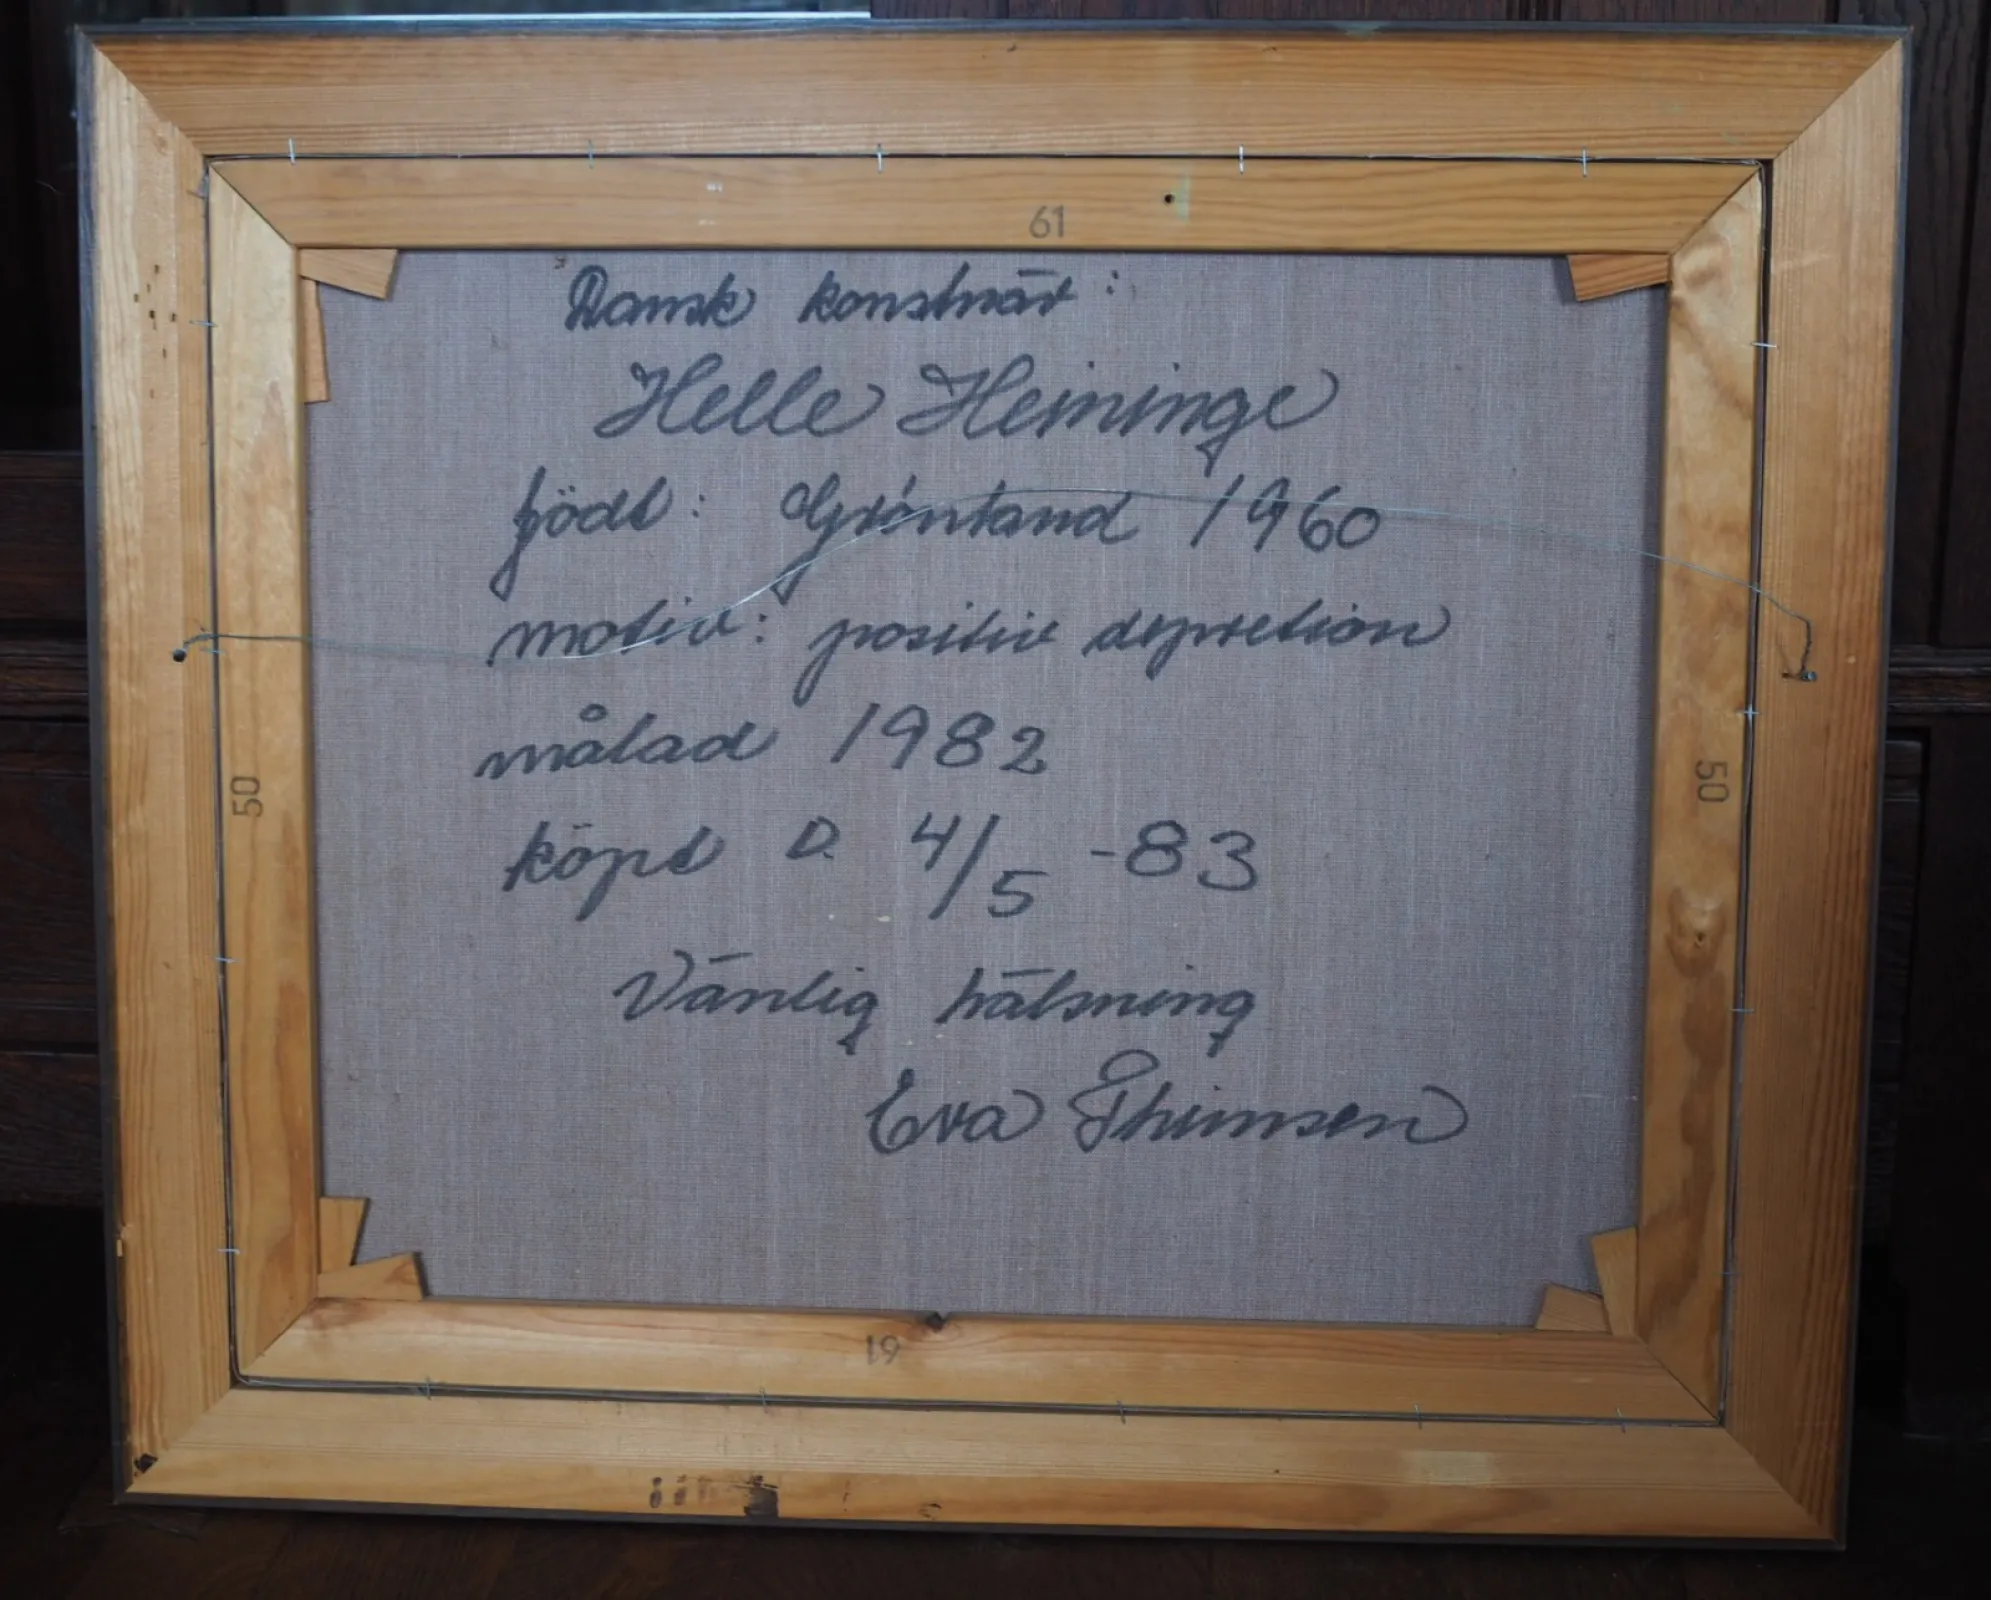 61
Dansk konstnär:
Helle Heininge
född: Grönland 1960
motiv: positiv depretion
målad 1982
50
50
köpd D. 4/5 -83
Vänlig hälsning
Eva Thimsen
61